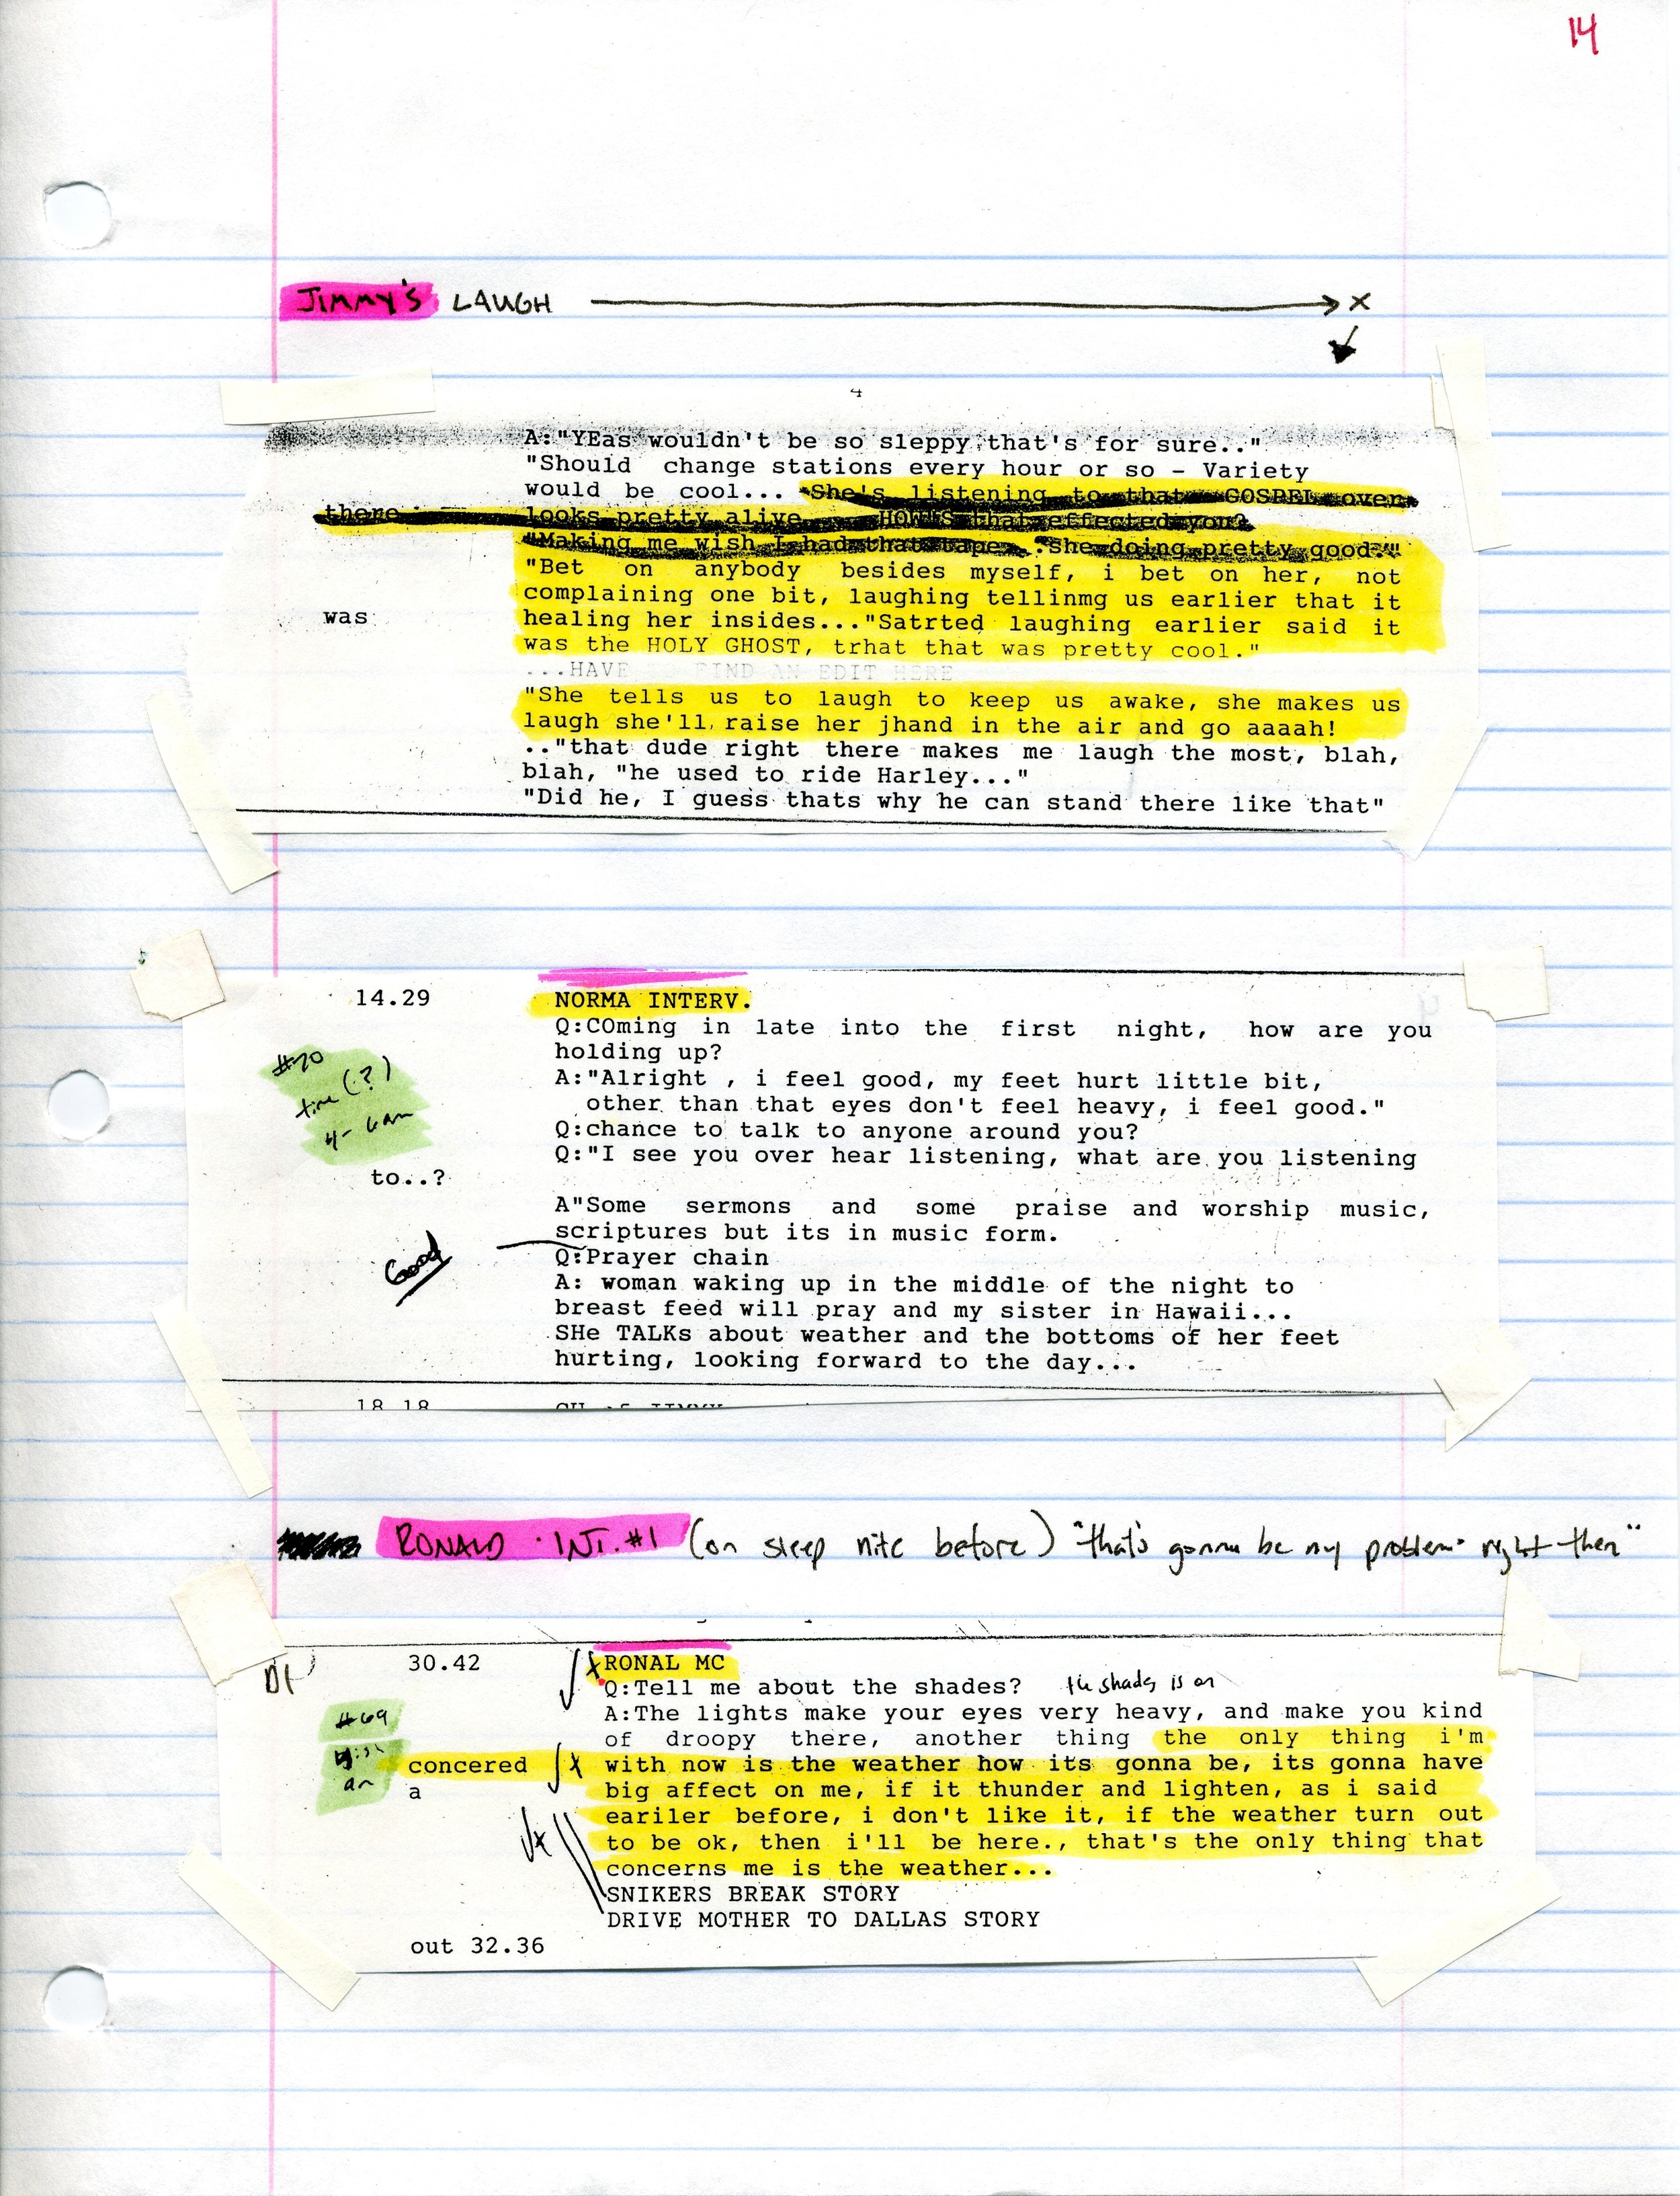 14
JIMMY'S LAUGH → X
4
A:"YEas wouldn't be so sleppy that's for sure.."
"Should change stations every hour or so - Variety
would be cool... She's listening to that GOSPEL over
there looks pretty alive HOW'S that effected you?
"Making me wish I had that tape. .She doing pretty good."
"Bet on anybody besides myself, i bet on her, not
complaining one bit, laughing tellinmg us earlier that it
was healing her insides..."Satrted laughing earlier said it
was the HOLY GHOST, trhat that was pretty cool."
...HAVE FIND AN EDIT HERE
"She tells us to laugh to keep us awake, she makes us
laugh she'll raise her jhand in the air and go aaaah!
.."that dude right there makes me laugh the most, blah,
blah, "he used to ride Harley..."
"Did he, I guess thats why he can stand there like that"
14.29 NORMA INTERV.
Q:COming in late into the first night, how are you
holding up?
#70
time (?)
A:"Alright , i feel good, my feet hurt little bit,
other than that eyes don't feel heavy, i feel good."
Q:chance to talk to anyone around you?
Q:"I see you over hear listening, what are you listening
to..?
A"Some sermons and some praise and worship music,
scriptures but its in music form.
Good
Q:Prayer chain
A: woman waking up in the middle of the night to
breast feed will pray and my sister in Hawaii...
SHe TALKs about weather and the bottoms of her feet
hurting, looking forward to the day...
18 18
RONALD INT. #1 (on sleep nite before) "that's gonna be my problem right then"
D1 30.42 RONAL MC
Q:Tell me about the shades? the shades is on
A:The lights make your eyes very heavy, and make you kind
#69
of droopy there, another thing the only thing i'm
concered with now is the weather how its gonna be, its gonna have
a big affect on me, if it thunder and lighten, as i said
eariler before, i don't like it, if the weather turn out
to be ok, then i'll be here., that's the only thing that
concerns me is the weather...
SNIKERS BREAK STORY
DRIVE MOTHER TO DALLAS STORY
out 32.36